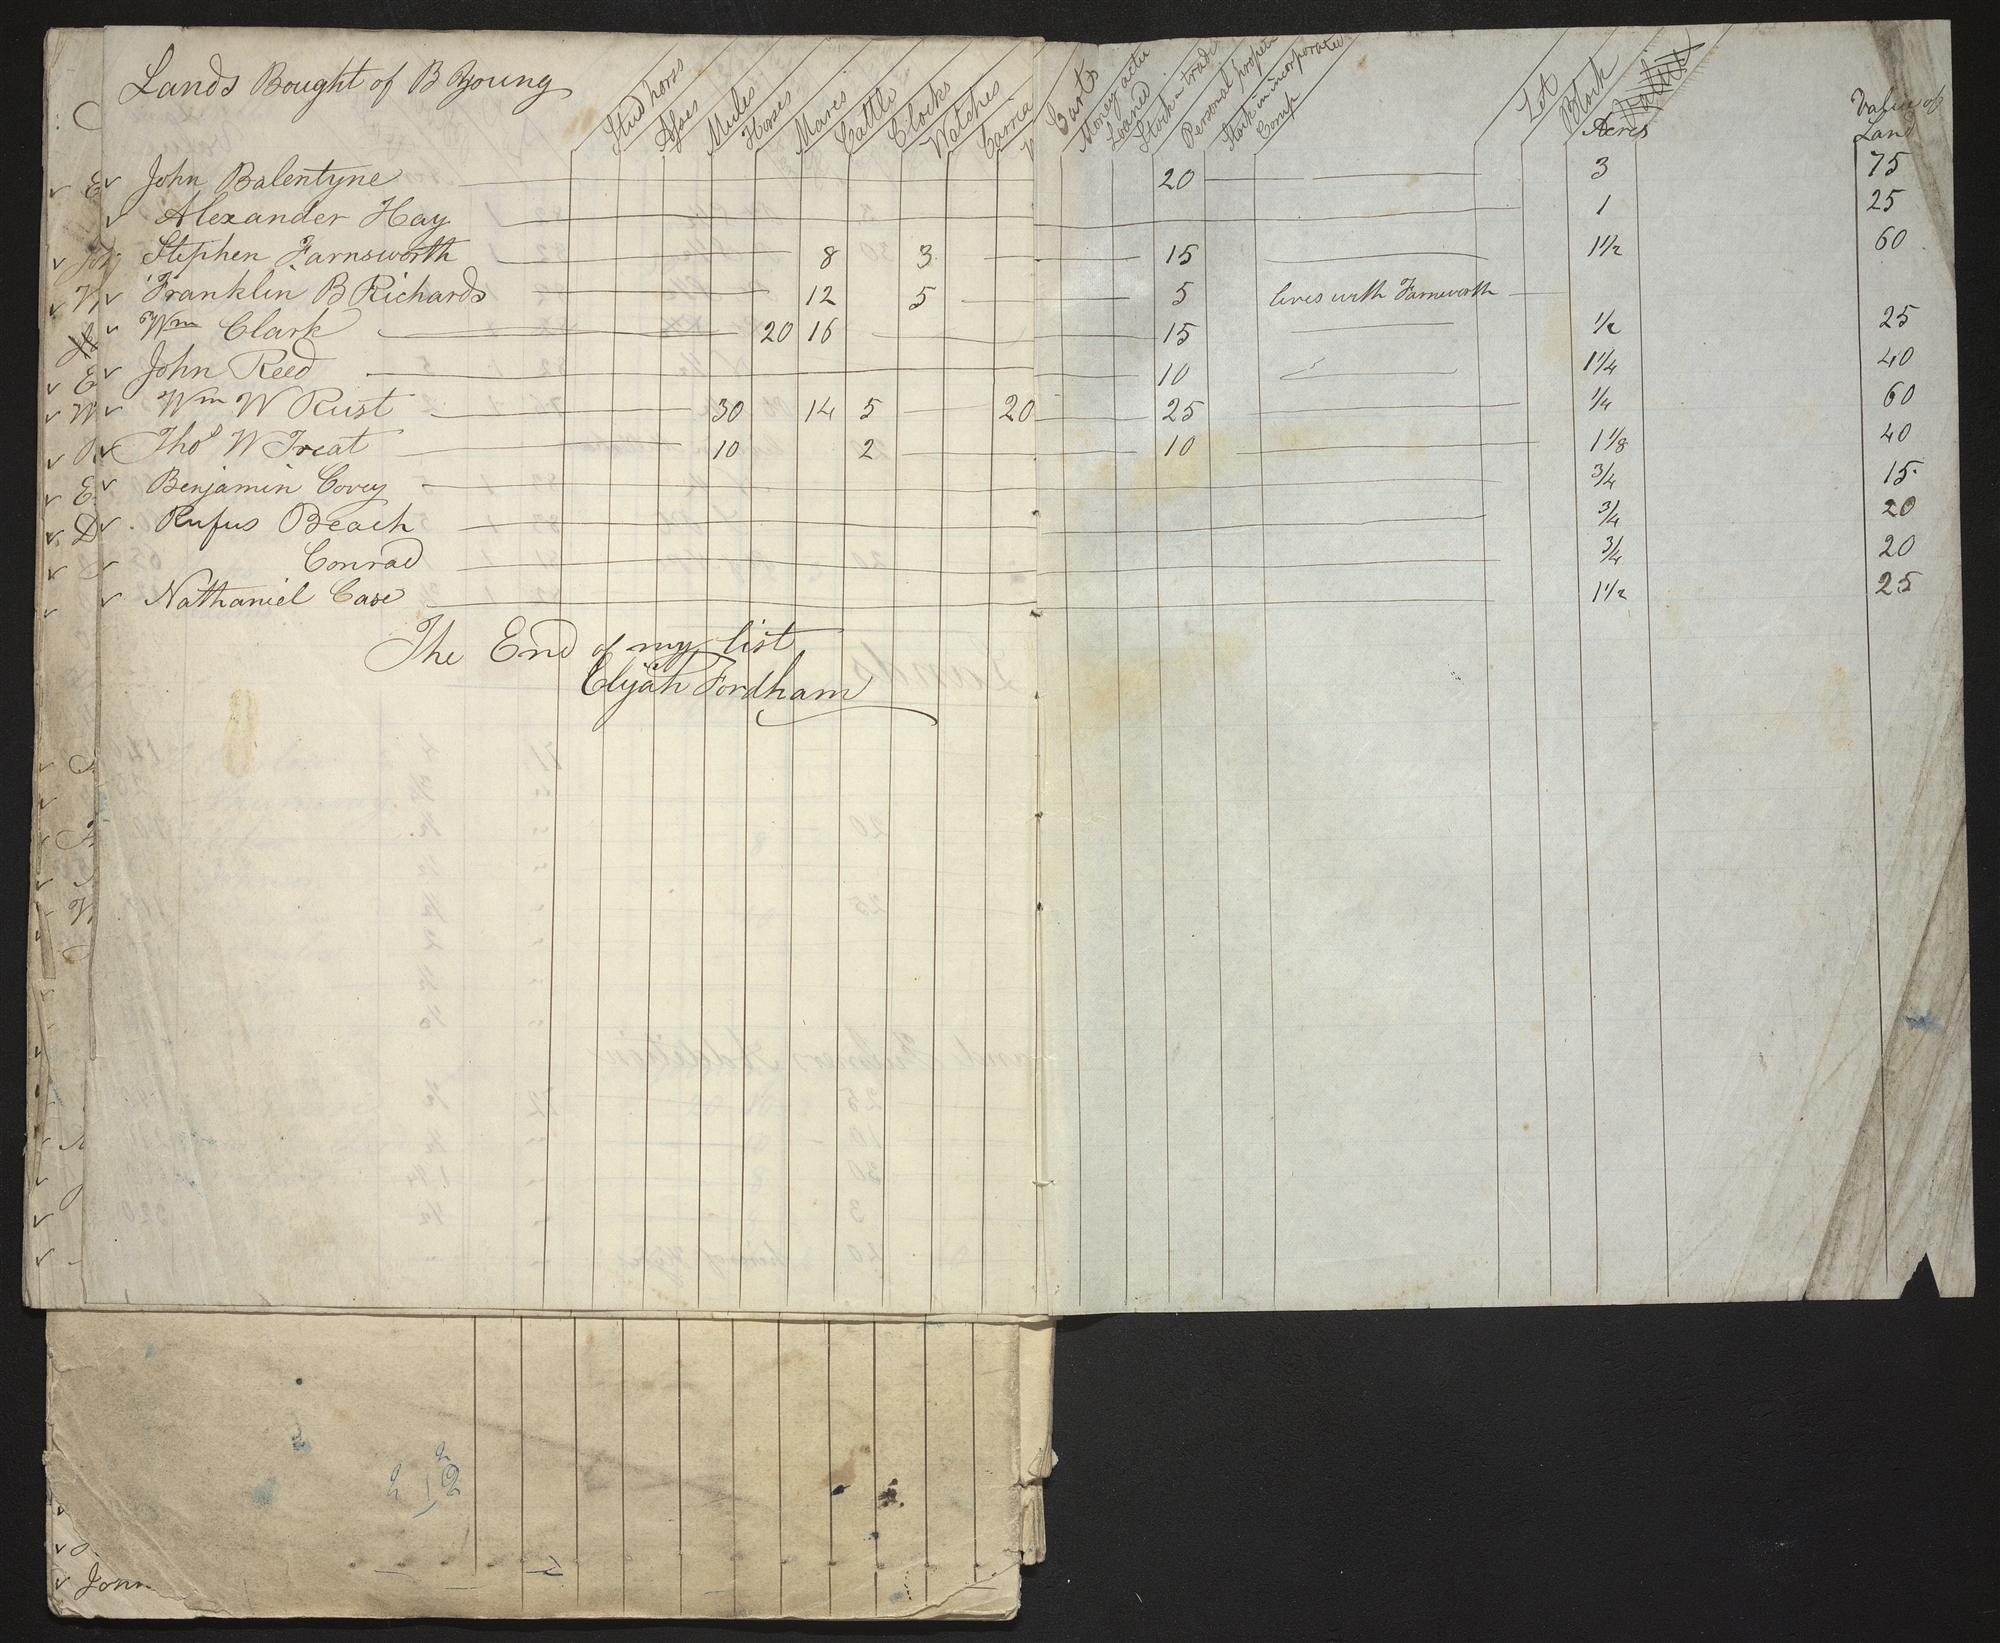 Lands Bought of B Young
Stud horss Asses Mules Horses Mares Cattle Clocks Watches Carria Carts Money actu Loaned Stock in trade Personal propert Stock in incorporated Comp Lot Block Acres Value of Land
John Balentyne 20 3 75
Alexander Hay 1 25
Stephen Farnsworth 8 3 15 1 1/2 60
Franklin B Richards 12 5 5 lives with Farnsworth
Wm Clark 20 16 15 1/2 25
John Reed 10 1 1/4 40
Wm W Rust 30 14 5 20 25 1/4 60
Thos W Treat 10 2 10 1 1/8 40
Benjamin Covey 3/4 15
Rufus Beach 3/4 20
Conrad 3/4 20
Nathaniel Case 1 1/2 25
The End of my list
Elijah Fordham